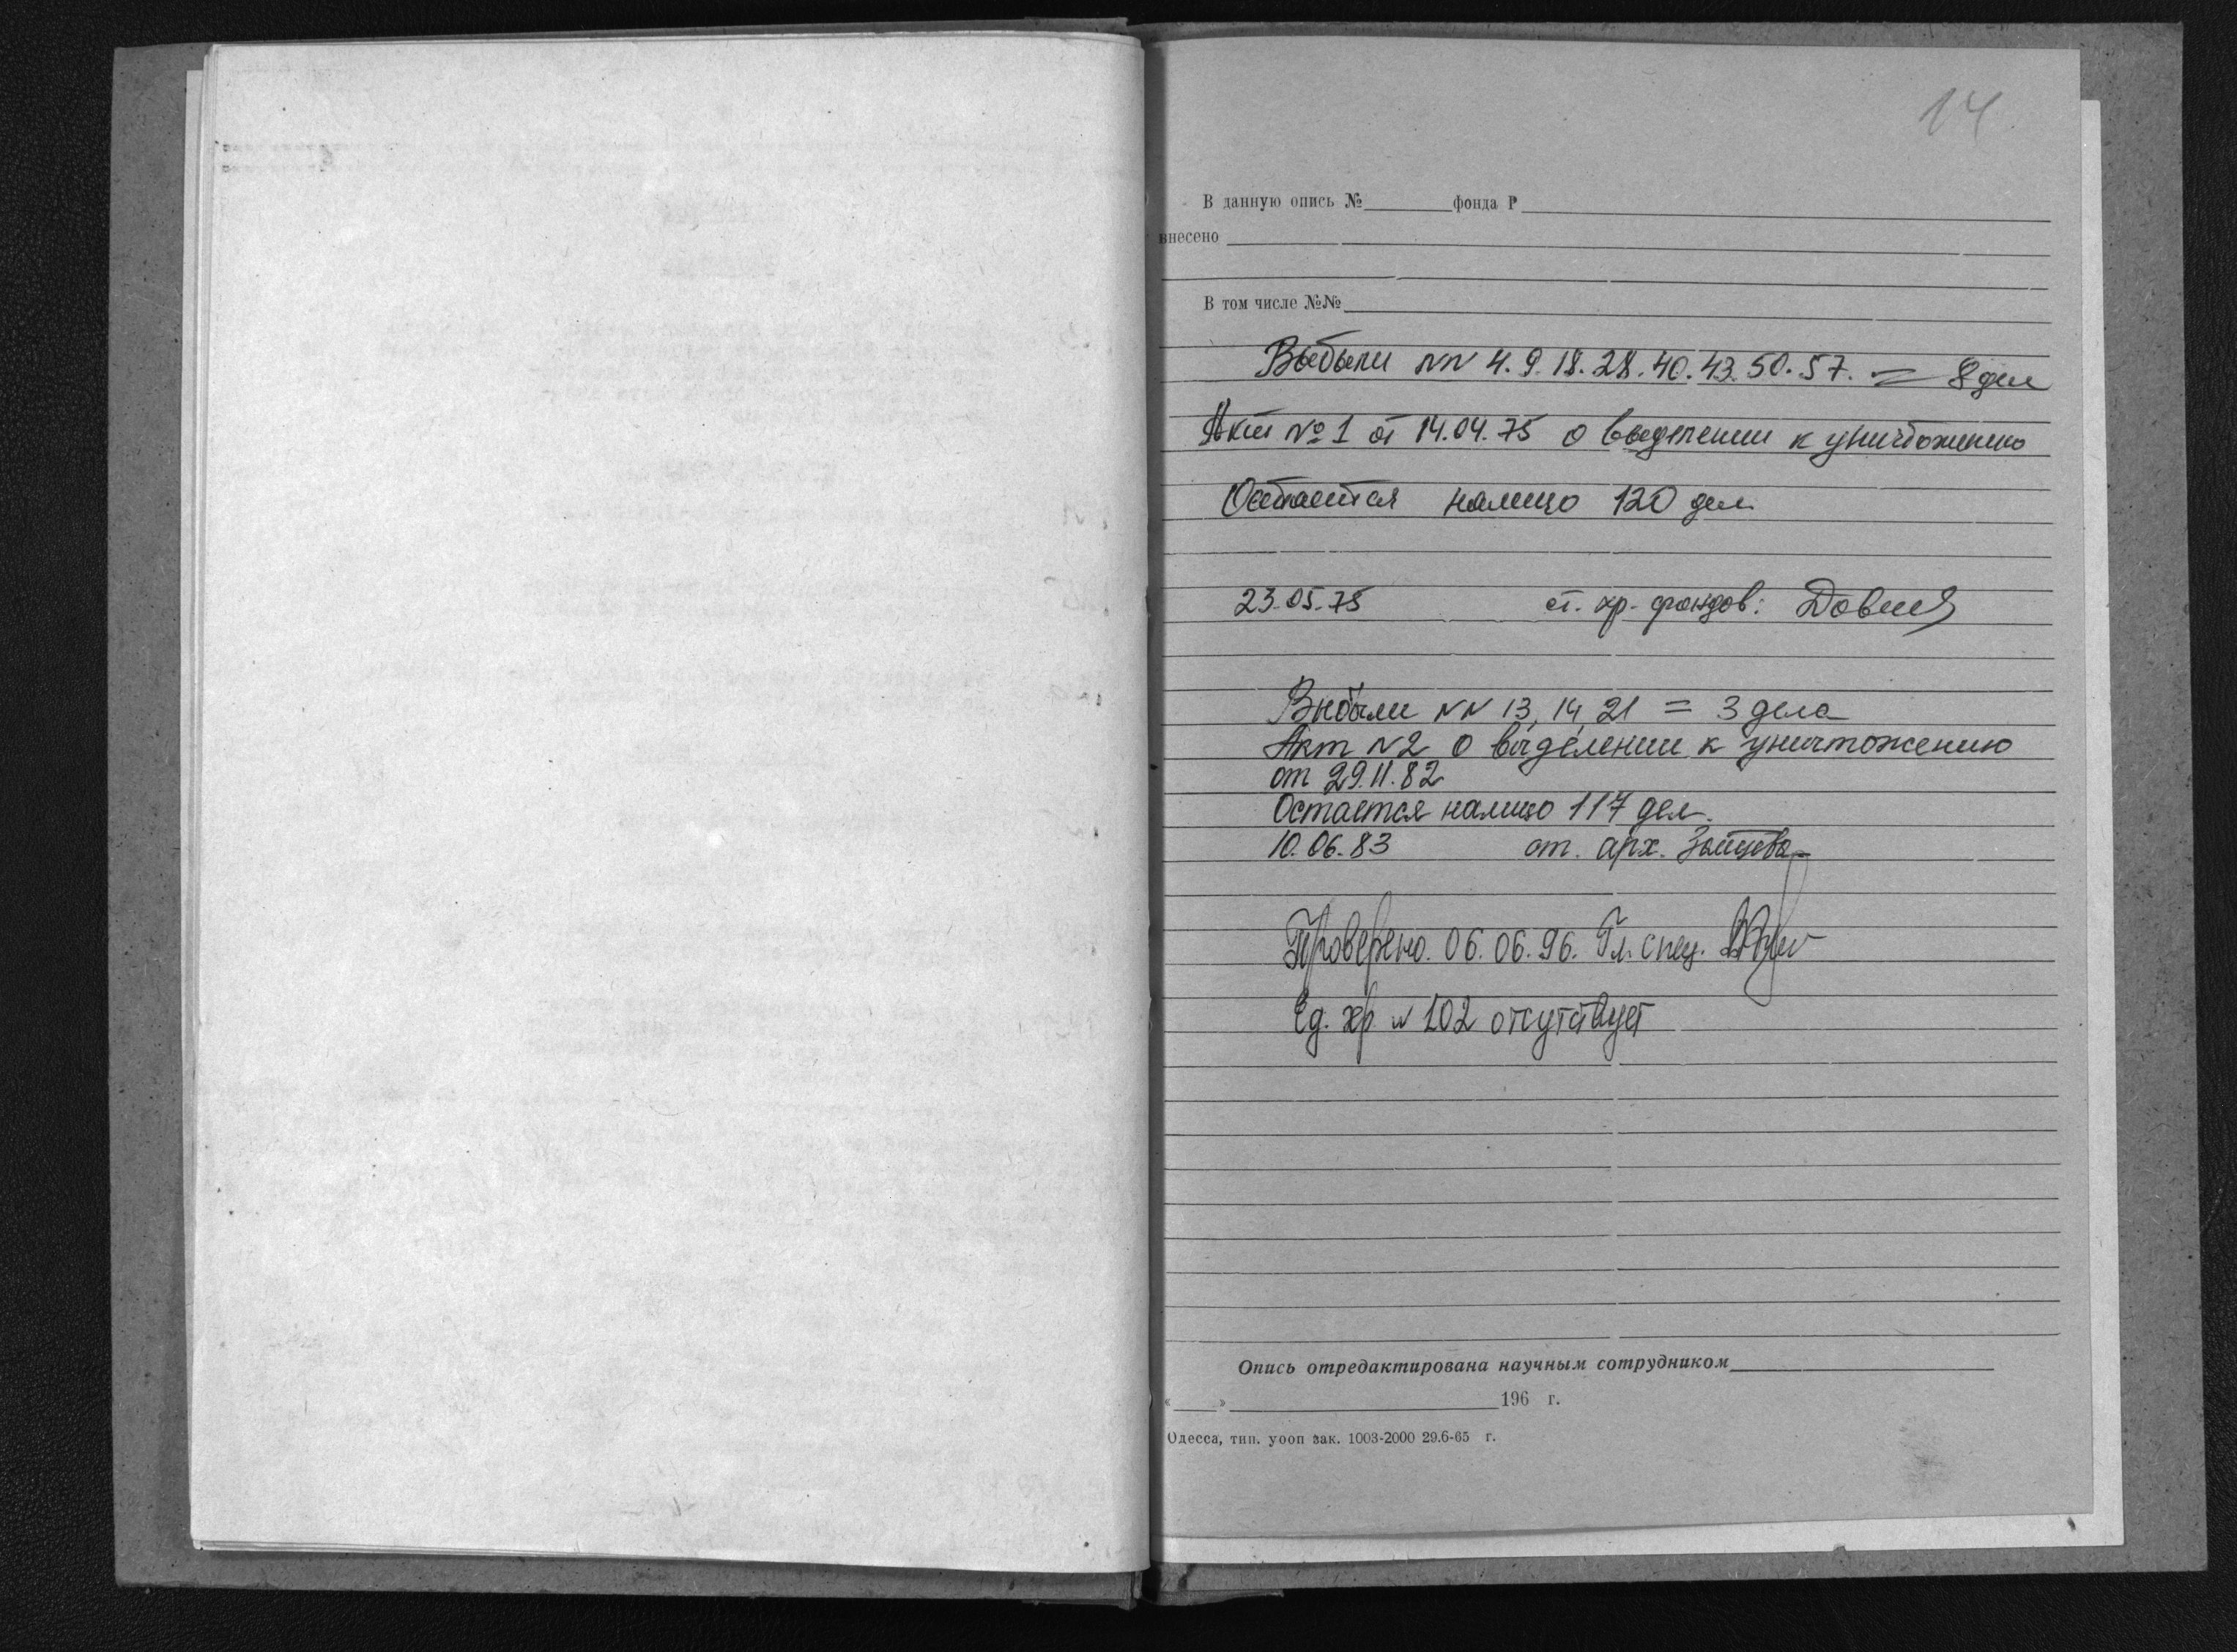 14
В данную опись № фонда Р
внесено
В том числе №№
Выбыли NN 4. 9. 18. 28. 40. 43. 50. 57. = 8 дел
Акт № 1 от 14.04.75 о выделении к уничтожению
Остается налицо 120 дел
23.05.75 ст. хр. фондов:
Выбыли NN 13, 14, 21 = 3 дела
Акт N2 о выделении к уничтожению
от 29.11.82
Остается налицо 117 дел.
10.06.83 ст. арх. Зайцева
Проверено. 06.06.96. Гл. спец.
Ед. хр. N 102 отсутствует
Опись отредактирована научным сотрудником
« » 196 г.
Одесса, тип. уооп зак. 1003-2000 29.6-65 г.